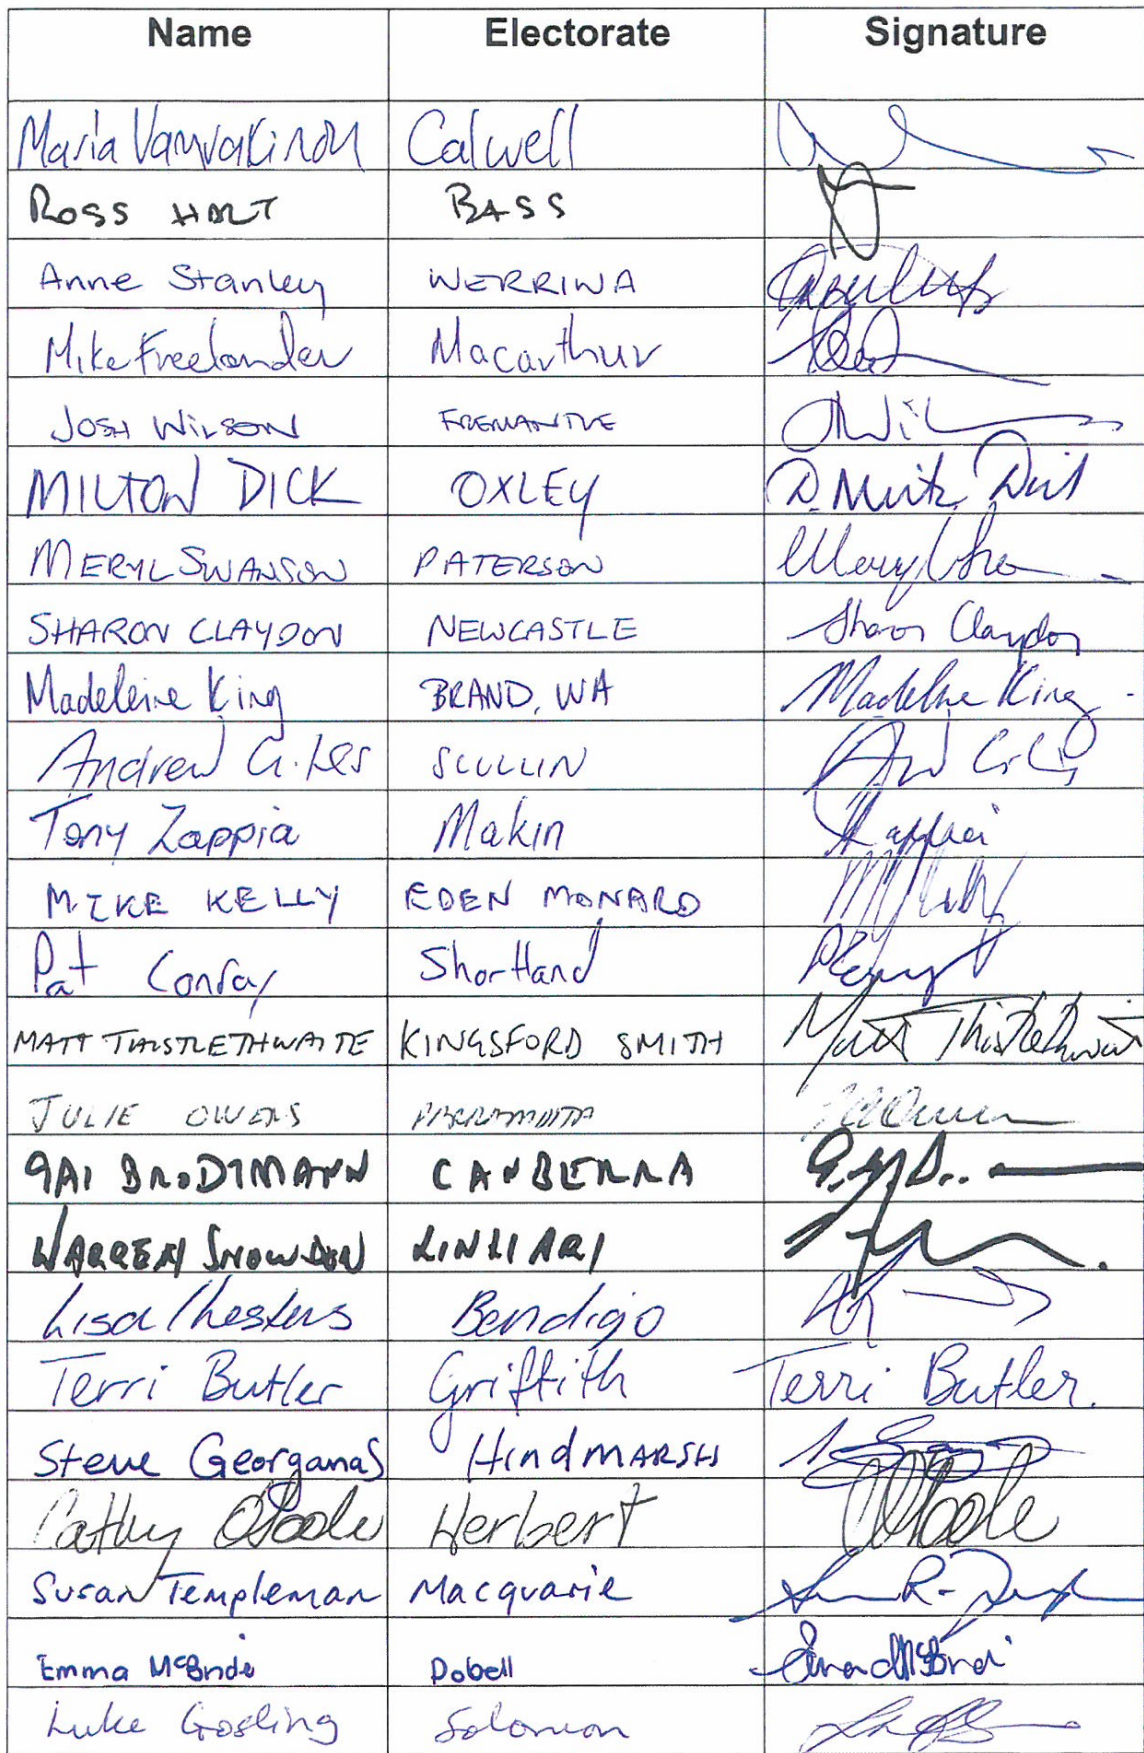 Name Electorate Signature
Maria Vamvakinou Calwell
ROSS HART BASS
Anne Stanley WERRIWA
Mike Freelander Macarthur
JOSH WILSON FREMANTLE
MILTON DICK OXLEY D. Milton Dick
MERYL SWANSON PATERSON
SHARON CLAYDON NEWCASTLE Sharon Claydon
Madeleine King BRAND, WA Madeleine King
Andrew Giles SCULLIN
Tony Zappia Makin
MIKE KELLY EDEN MONARO
Pat Conroy Shortland
MATT THISTLETHWAITE KINGSFORD SMITH Matt Thistlethwaite
JULIE OWENS PARRAMATTA
GAI BRODTMANN CANBERRA
WARREN SNOWDON LINGIARI
Lisa Chesters Bendigo
Terri Butler Griffith Terri Butler.
Steve Georganas HindMARSH
Cathy O'Toole Herbert O'Toole
Susan Templeman Macquarie
Emma McBride Dobell
Luke Gosling Solomon